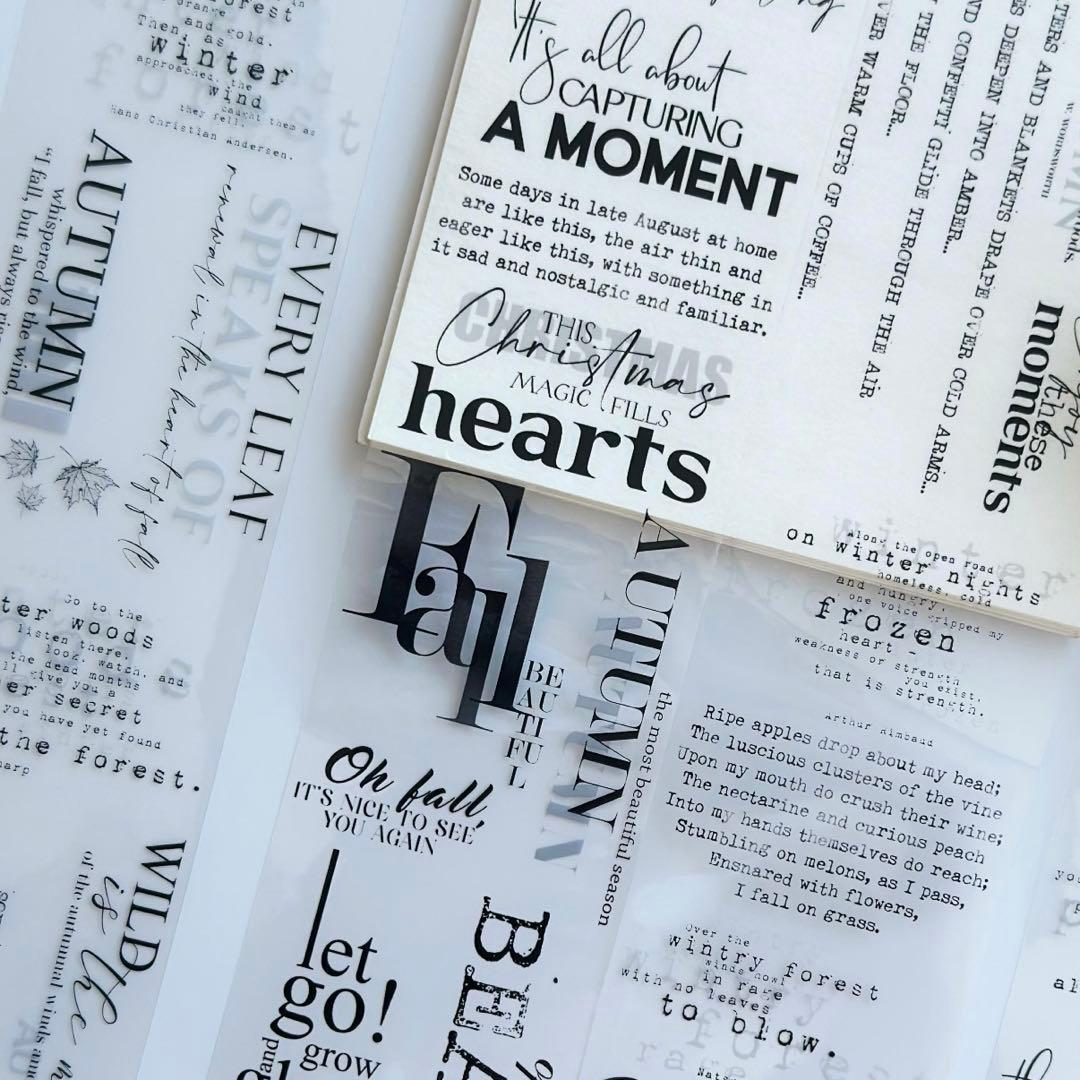 forest
orange
and gold.
Then, as
winter
approached, the
wind
caught them as
they fell.
Hans Christian Andersen.
AUTUMN
whispered to the wind,
"I fall, but always
EVERY LEAF
SPEAKS OF
renewal in the heart of fall
Go to the
woods
listen there,
look, watch, and
the dead months
give you a
secret
you have yet found
the forest.
WILD
is the
of the autumnal winds
It's all about
CAPTURING
A MOMENT
Some days in late August at home
are like this, the air thin and
eager like this, with something in
it sad and nostalgic and familiar.
CHRISTMAS
THIS
Christmas
MAGIC FILLS
hearts
WARM CUPS OF COFFEE...
THE FLOOR...
CONFETTI GLIDE THROUGH THE AIR
DEPEN INTO AMBER...
AND BLANKETS DRAPE OVER COLD ARMS...
W. WORDSWORTH
these
moments
Fall
BEAUTIFUL
AUTUMN
the most beautiful season
Oh fall,
IT'S NICE TO SEE
YOU AGAIN
let
go!
and
grow
Along the open road
on winter nights
homeless, cold
and hungry,
one voice gripped my
frozen
heart -
weakness or strength
you exist,
that is strength.
Arthur Rimbaud
Ripe apples drop about my head;
The luscious clusters of the vine
Upon my mouth do crush their wine;
The nectarine and curious peach
Into my hands themselves do reach;
Stumbling on melons, as I pass,
Ensnared with flowers,
I fall on grass.
Over the
wintry forest
winds howl
in rage
with no leaves
to blow.